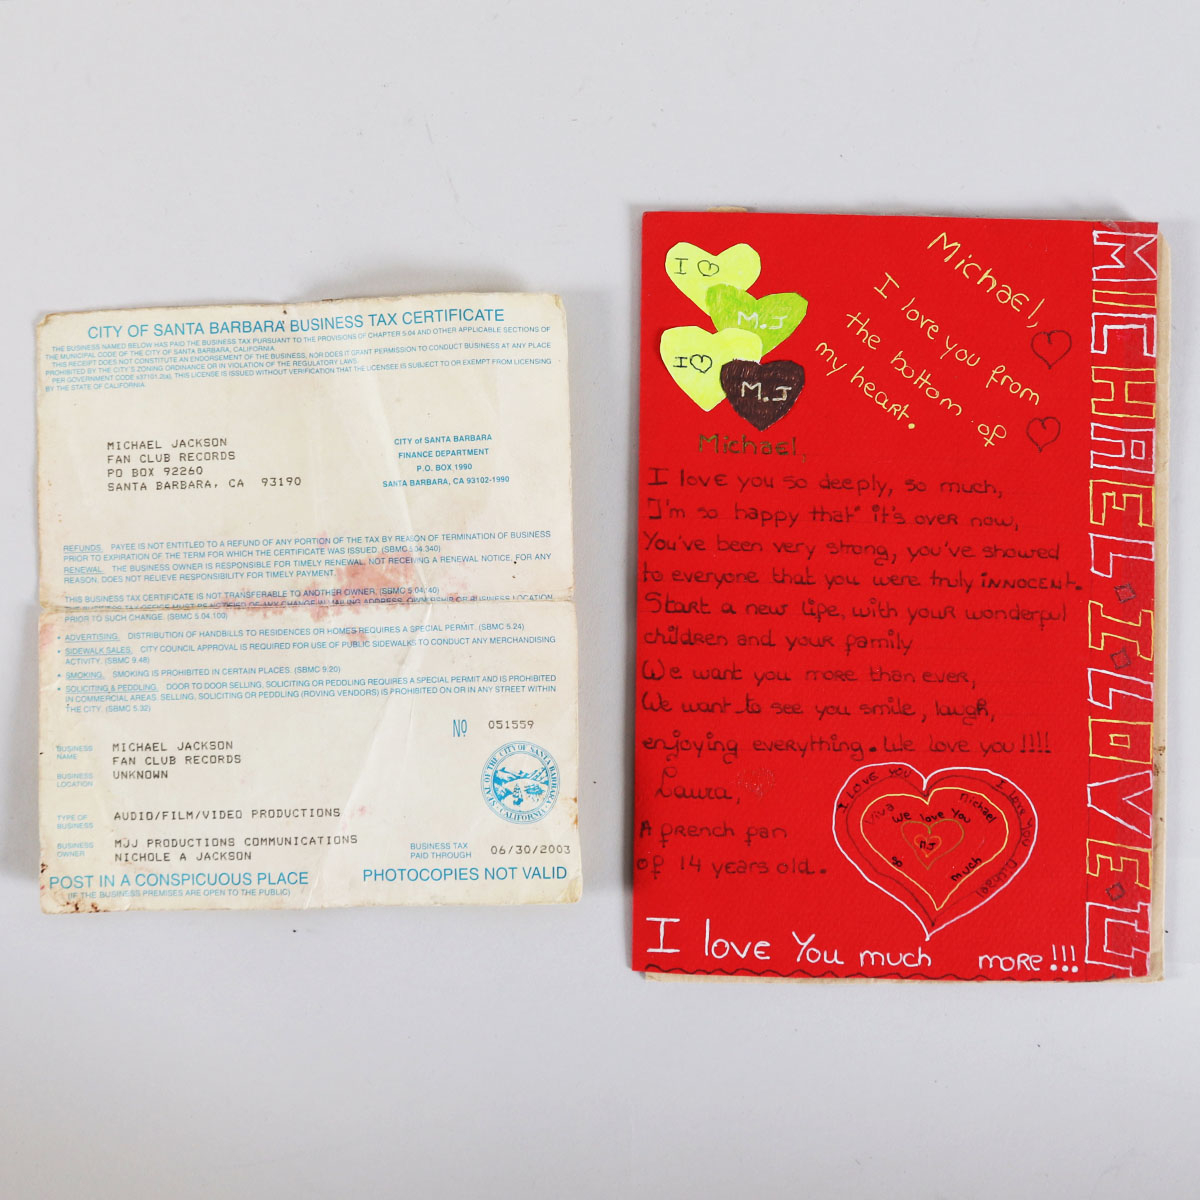 CITY OF SANTA BARBARA BUSINESS TAX CERTIFICATE
THE BUSINESS NAMED BELOW HAS PAID THE BUSINESS TAX PURSUANT TO THE PROVISIONS OF CHAPTER 5.04 AND OTHER APPLICABLE SECTIONS OF
THE MUNICIPAL CODE OF THE CITY OF SANTA BARBARA, CALIFORNIA.
THIS RECEIPT DOES NOT CONSTITUTE AN ENDORSEMENT OF THE BUSINESS, NOR DOES IT GRANT PERMISSION TO CONDUCT BUSINESS AT ANY PLACE
PROHIBITED BY THE CITY'S ZONING ORDINANCE OR IN VIOLATION OF THE REGULATORY LAWS.
PER GOVERNMENT CODE THIS LICENSE IS ISSUED WITHOUT VERIFICATION THAT THE LICENSEE IS SUBJECT TO OR EXEMPT FROM LICENSING
BY THE STATE OF CALIFORNIA.
MICHAEL JACKSON
FAN CLUB RECORDS
PO BOX 92260
SANTA BARBARA, CA 93190
CITY of SANTA BARBARA
FINANCE DEPARTMENT
P.O. BOX 1990
SANTA BARBARA, CA 93102-1990
REFUNDS. PAYEE IS NOT ENTITLED TO A REFUND OF ANY PORTION OF THE TAX BY REASON OF TERMINATION OF BUSINESS
PRIOR TO EXPIRATION OF THE TERM FOR WHICH THE CERTIFICATE WAS ISSUED. (SBMC 5.04.340)
RENEWAL. THE BUSINESS OWNER IS RESPONSIBLE FOR TIMELY RENEWAL, NOT RECEIVING A RENEWAL NOTICE, FOR ANY
REASON, DOES NOT RELIEVE RESPONSIBILITY FOR TIMELY PAYMENT.
THIS BUSINESS TAX CERTIFICATE IS NOT TRANSFERABLE TO ANOTHER OWNER. (SBMC 5.04.740)
TAX OFFICE MUST BE NOTIFIED OF ANY CHANGE IN MAILING ADDRESS, OWNERSHIP OR BUSINESS LOCATION
PRIOR TO SUCH CHANGE. (SBMC 5.04.100)
• ADVERTISING. DISTRIBUTION OF HANDBILLS TO RESIDENCES OR HOMES REQUIRES A SPECIAL PERMIT. (SBMC 5.24)
• SIDEWALK SALES. CITY COUNCIL APPROVAL IS REQUIRED FOR USE OF PUBLIC SIDEWALKS TO CONDUCT ANY MERCHANDISING
ACTIVITY. (SBMC 9.48)
• SMOKING. SMOKING IS PROHIBITED IN CERTAIN PLACES. (SBMC 9.20)
• SOLICITING & PEDDLING. DOOR TO DOOR SELLING, SOLICITING OR PEDDLING REQUIRES A SPECIAL PERMIT AND IS PROHIBITED
IN COMMERCIAL AREAS. SELLING, SOLICITING OR PEDDLING (ROVING VENDORS) IS PROHIBITED ON OR IN ANY STREET WITHIN
THE CITY. (SBMC 5.32)
Nº 051559
BUSINESS NAME
MICHAEL JACKSON
FAN CLUB RECORDS
BUSINESS LOCATION
UNKNOWN
SEAL OF THE CITY OF SANTA BARBARA CALIFORNIA
TYPE OF BUSINESS
AUDIO/FILM/VIDEO PRODUCTIONS
BUSINESS OWNER
MJJ PRODUCTIONS COMMUNICATIONS
NICHOLE A JACKSON
BUSINESS TAX PAID THROUGH
06/30/2003
POST IN A CONSPICUOUS PLACE
(IF THE BUSINESS PREMISES ARE OPEN TO THE PUBLIC)
PHOTOCOPIES NOT VALID
I ♡
M.J
I ♡
M.J
Michael,
I love you from
the bottom of
my heart.
Michael,
I love you so deeply, so much,
I'm so happy that it's over now,
You've been very strong, you've showed
to everyone that you were truly INNOCENT.
Start a new life, with your wonderful
children and your family
We want you more than ever,
We want to see you smile, laugh,
enjoying everything. We love you !!!!
Laura,
A french fan
of 14 years old.
I LOVE YOU
I LOVE YOU Michael
Viva Michael
We love you
so much
MJ
I love You much more !!!
MICHAEL I LOVE U